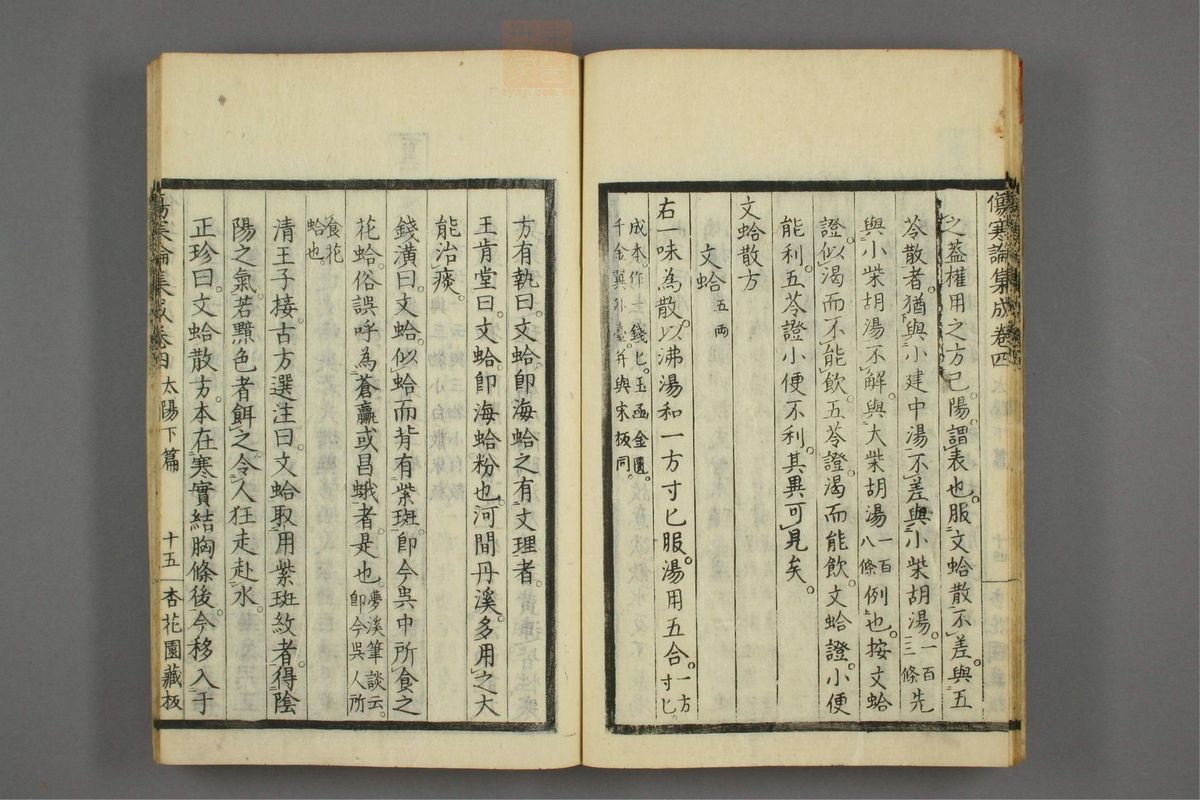 傷寒論集成卷四
之葢權用之方已。陽謂表也。服文蛤散不差與五
苓散者。猶與小建中湯不差與小柴胡湯。一百三條先
與小柴胡湯不解。與大柴胡湯一百八條例也。按文蛤
證。似渴而不能飲。五苓證。渴而能飲。文蛤證小便
能利。五苓證小便不利。其異可見矣。
文蛤散方
文蛤五兩
右一味為散。以沸湯和一方寸匕服。湯用五合。一方寸匕。
成本。作一錢匕。玉函金匱。
千金翼外臺。并與宋板同。
方有執曰。文蛤。卽海蛤之有文理者。
王肯堂曰。文蛤。卽海蛤粉也。河間丹溪。多用之大
能治痰。
錢潢曰。文蛤。似蛤而背有紫斑。卽今吳中所食之
花蛤。俗誤呼為蒼蠃或昌蛾者。是也。夢溪筆談云。卽今吳人所
食花蛤也
清王子接。古方選注曰。文蛤取用紫斑紋者。得陰
陽之氣。若黑色者餌之。令人狂走赴水。
正珍曰。文蛤散方。本在寒實結胸條後。今移入于
傷寒論集成卷四 太陽下篇 十五 杏花園藏板